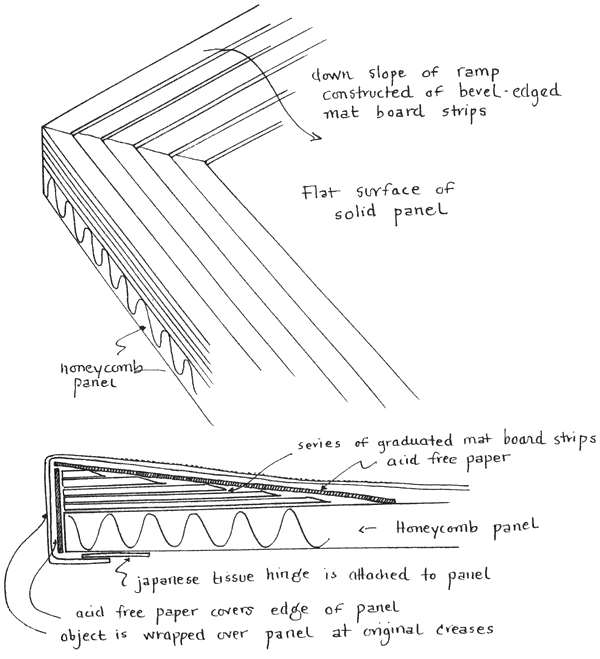 down slope of ramp
constructed of bevel-edged
mat board strips
Flat surface of
solid panel
honeycomb
panel
series of graduated mat board strips
acid free paper
← Honeycomb panel
japanese tissue hinge is attached to panel
acid free paper covers edge of panel
object is wrapped over panel at original creases